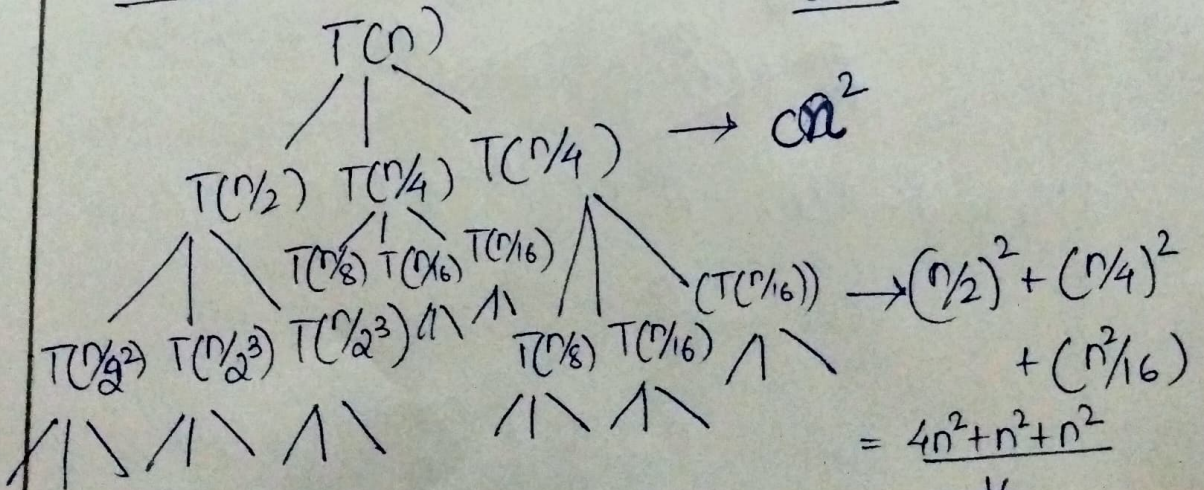 T(n)
→ cn²
T(n/2) T(n/4) T(n/4)
T(n/8) T(n/16) T(n/16)
(T(n/16)) → (n/2)² + (n/4)²
T(n/2²) T(n/2³) T(n/2³) T(n/8) T(n/16)
+ (n²/16)
= 4n²+n²+n²